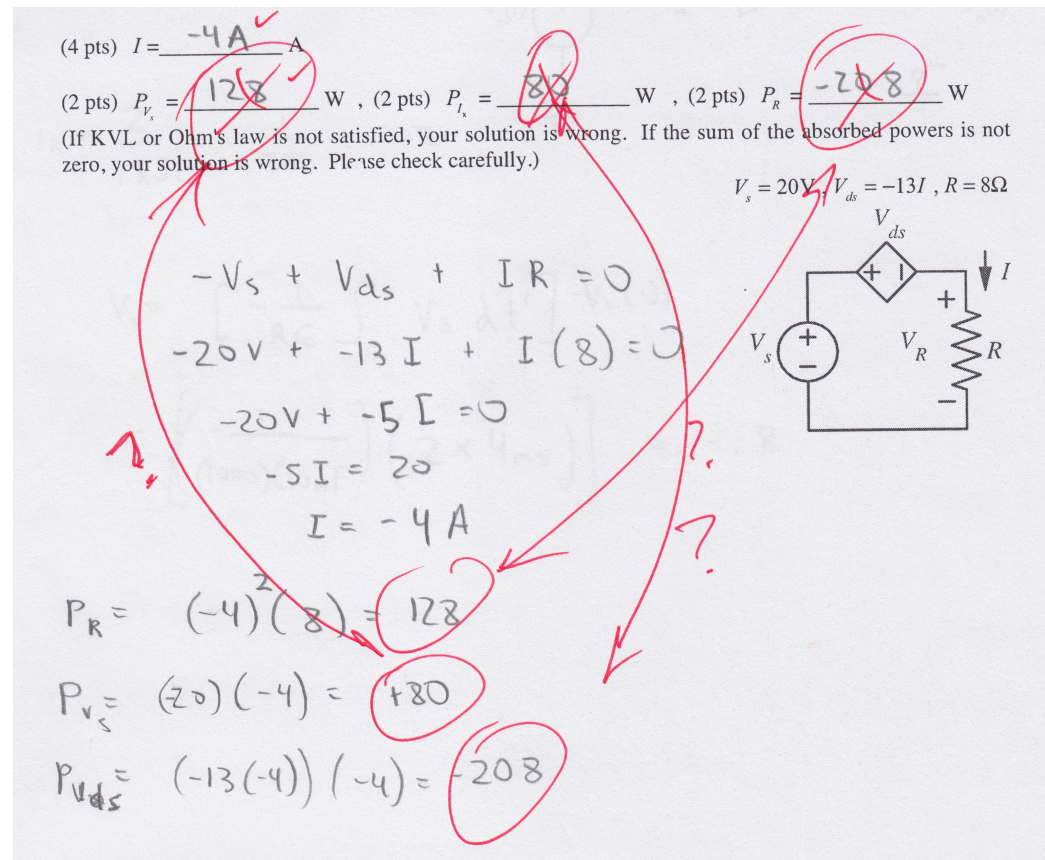 (4 pts) I = -4 A A ✓
(2 pts) P_{V_s} = 128 W , (2 pts) P_{I_x} = 80 W , (2 pts) P_R = -208 W
(If KVL or Ohm's law is not satisfied, your solution is wrong. If the sum of the absorbed powers is not
zero, your solution is wrong. Please check carefully.)
V_s = 20V, V_{ds} = -13I , R = 8Ω
V_{ds}
+ − I
-V_s + V_{ds} + IR = 0
+
-20V + -13 I + I (8) = 0
V_s + − V_R R
−
-20V + -5 I = 0
?
?
-5 I = 20
I = -4 A
?
P_R = (-4)^2 (8) = 128
P_{V_s} = (-20) (-4) = +80
P_{Vds} = (-13(-4)) (-4) = -208